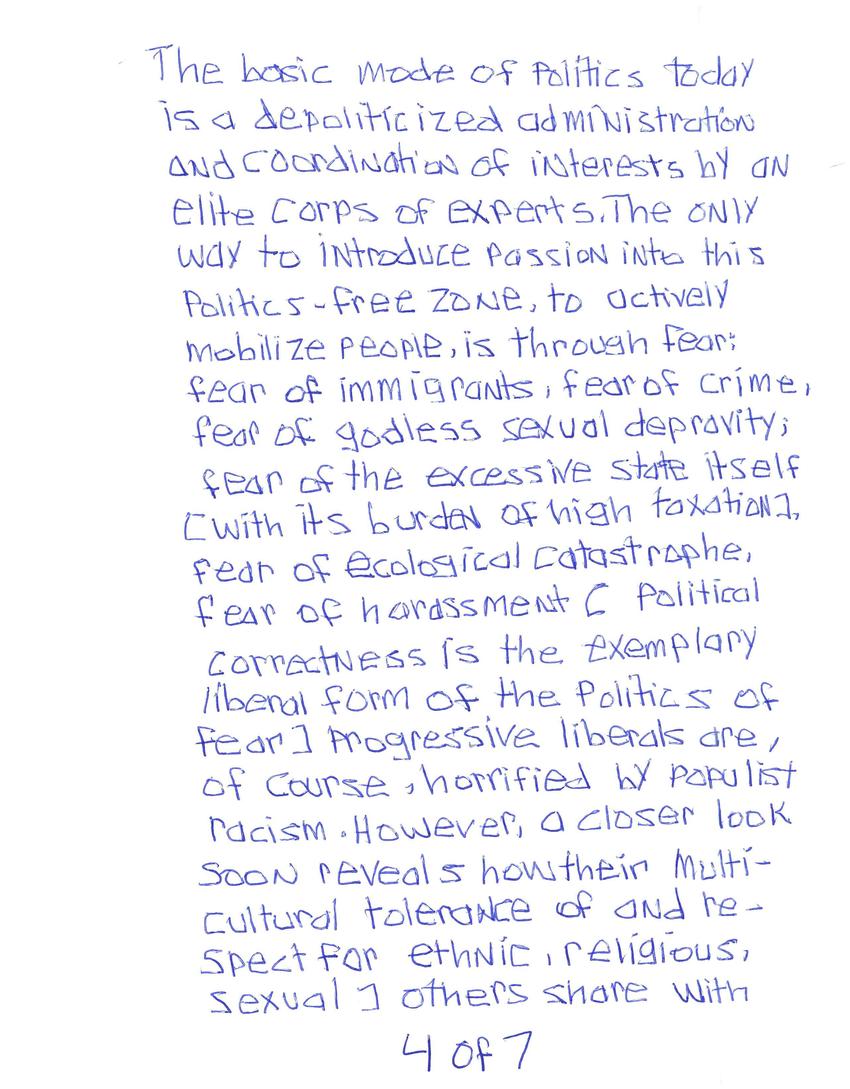 The basic mode of Politics today
is a depoliticized administration
and coordination of interests by an
elite corps of experts. The only
way to introduce passion into this
Politics-free zone, to actively
mobilize people, is through fear:
fear of immigrants, fear of crime,
fear of godless sexual depravity;
fear of the excessive state itself
[with its burden of high taxation],
fear of ecological catastrophe,
fear of harassment [ Political
correctness is the exemplary
liberal form of the Politics of
fear] Progressive liberals are,
of course, horrified by populist
racism. However, a closer look
soon reveals how their Multi-
cultural tolerance of and re-
spect for ethnic, religious,
sexual] others share with
4 of 7